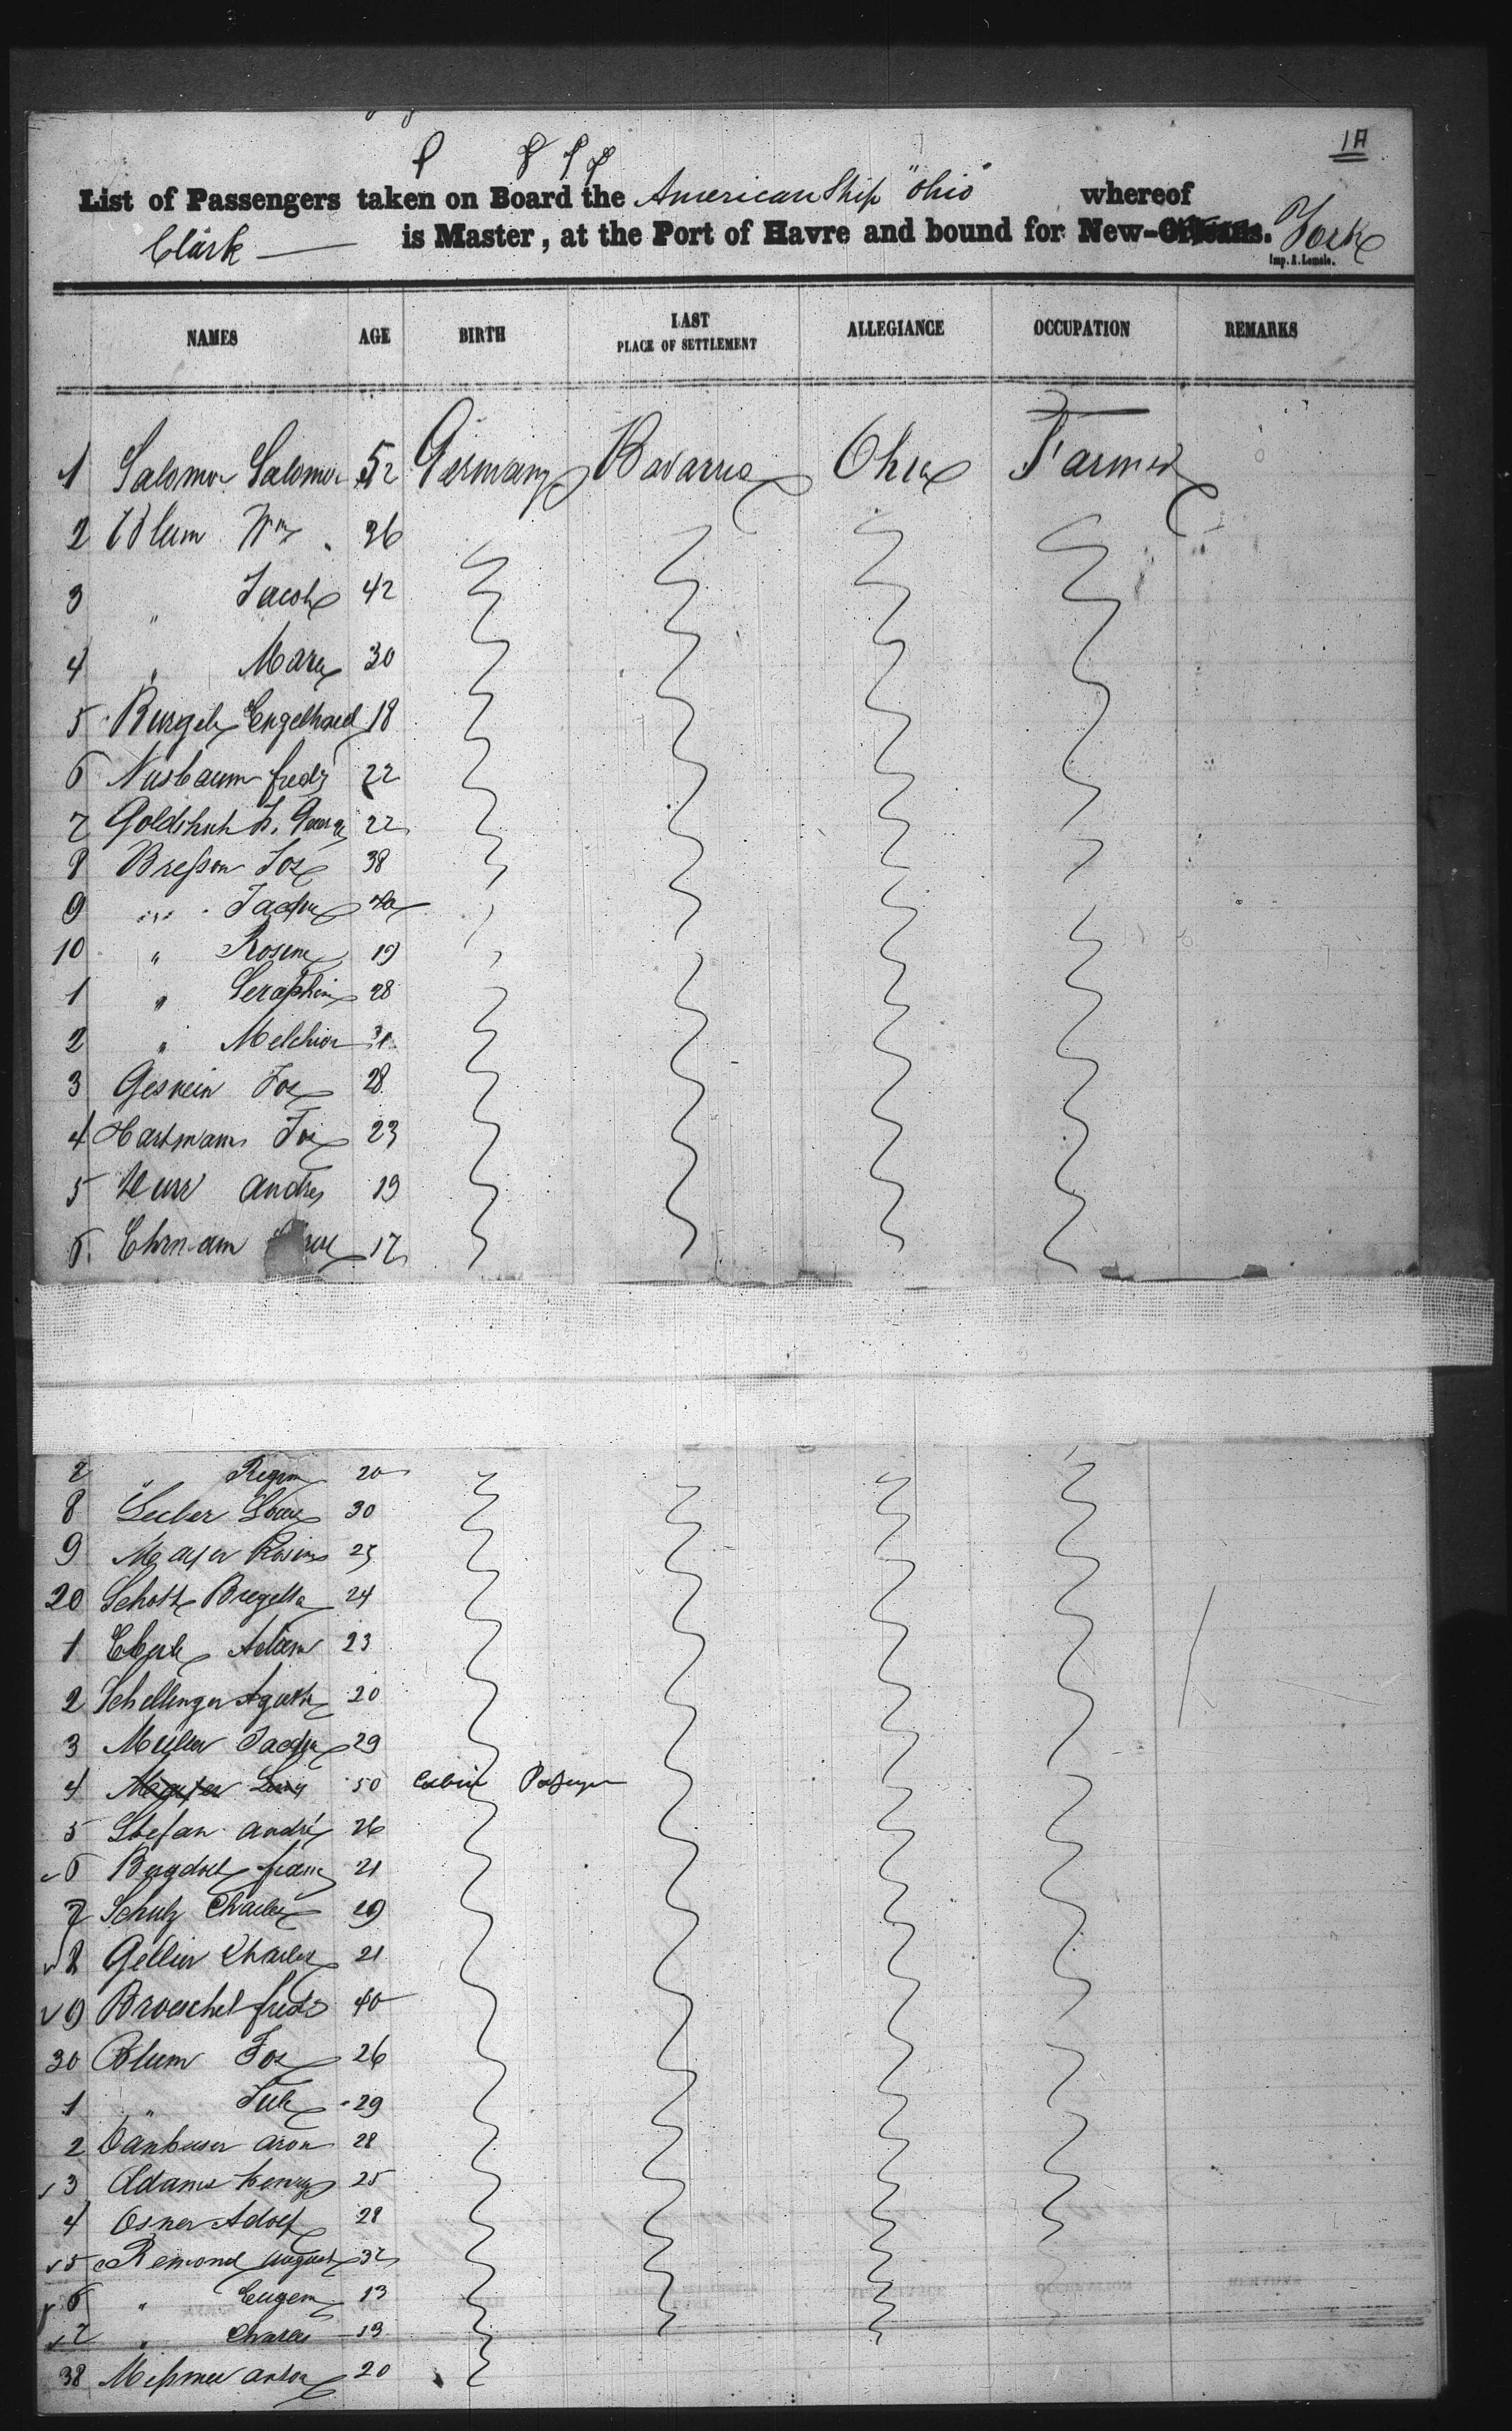 1A
List of Passengers taken on Board the American Ship "Ohio" whereof
Clark is Master, at the Port of Havre and bound for New-Orleans. York
Imp. A. Lemale.
NAMES AGE BIRTH LAST PLACE OF SETTLEMENT ALLEGIANCE OCCUPATION REMARKS
1 Salomon Salomon 52 Germany Bavaria Ohio Farmer
2 Blum Wm 26
3 " Jacob 42
4 " Mary 30
5 Engelhard 18
6 Nusbaum fredr 22
7 George 22
8 Bresson Jos 38
9 " Jacque
10 " Rosine 19
1 " Seraphin 28
2 " Melchior 31
3 Gesvein Jos 28
4 Hartmann Jos 23
5 andre 19
6 Ehrmann 17
7 " Regina 20
8 30
9 Mayer Rosine 25
20 Schott 24
1 Eberle Adam 23
2 Schellinger 20
3 Muller Jacque 29
4 Mayer 50 Cabin Passenger
5 Stefan andré 26
6 franz 21
7 Schulz Charles 29
8 Charles 21
9 fredr 40
30 Blum Jos 26
1 " 29
2 aron 28
3 Adams henry 25
4 Osner Adolf 28
5 Remond august 32
6 " Eugene 13
7 " Charles 19
38 Messmer anton 20